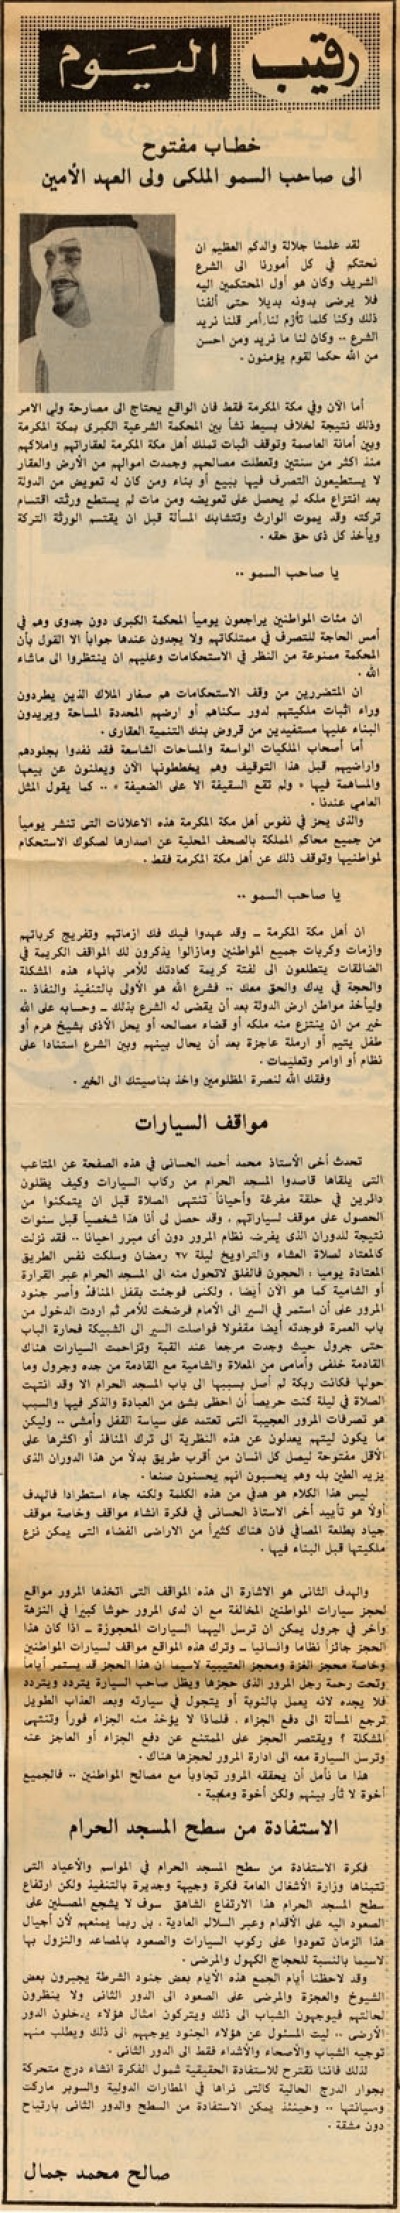 رقيب اليوم
خطاب مفتوح
الى صاحب السمو الملكى ولى العهد الأمين
لقد علمنا جلالة والدكم العظيم ان
نحتكم في كل أمورنا الى الشرع
الشريف وكان هو أول المحتكمين اليه
فلا يرضى بدونه بديلا حتى ألفنا
ذلك وكنا كلما تأزم لنا أمر قلنا نريد
الشرع .. وكان لنا ما نريد ومن احسن
من الله حكما لقوم يؤمنون .
أما الآن وفي مكة المكرمة فقط فان الواقع يحتاج الى مصارحة ولي الامر
وذلك نتيجة لخلاف بسيط نشأ بين المحكمة الشرعية الكبرى بمكة المكرمة
وبين أمانة العاصمة وتوقف اثبات تملك أهل مكة المكرمة لعقاراتهم واملاكهم
منذ اكثر من سنتين وتعطلت مصالحهم وجمدت اموالهم من الأرض والعقار
لا يستطيعون التصرف فيها ببيع أو بناء ومن كان له تعويض من الدولة
بعد انتزاع ملكه لم يحصل على تعويضه ومن مات لم يستطع ورثته اقتسام
تركته وقد يموت الوارث وتتشابك المسألة قبل ان يقتسم الورثة التركة
ويأخذ كل ذى حق حقه .
يا صاحب السمو ..
ان مئات المواطنين يراجعون يومياً المحكمة الكبرى دون جدوى وهم في
أمس الحاجة للتصرف في ممتلكاتهم ولا يجدون عندها جواباً الا القول بأن
المحكمة ممنوعة من النظر في الاستحكامات وعليهم ان ينتظروا الى ماشاء
الله .
ان المتضررين من وقف الاستحكامات هم صغار الملاك الذين يطردون
وراء اثبات ملكيتهم لدور سكناهم أو ارضهم المحددة المساحة ويريدون
البناء عليها مستفيدين من قروض بنك التنمية العقارى .
أما أصحاب الملكيات الواسعة والمساحات الشاسعة فقد نفدوا بجلودهم
واراضيهم قبل هذا التوقيف وهم يخططونها الآن ويعلنون عن بيعها
والمساهمة فيها « ولم تقع السقيفة الا على الضعيفة » .. كما يقول المثل
العامي عندنا .
والذى يحز في نفوس أهل مكة المكرمة هذه الاعلانات التى تنشر يومياً
من جميع محاكم المملكة بالصحف المحلية عن اصدارها لصكوك الاستحكام
لمواطنيها وتوقف ذلك عن أهل مكة المكرمة فقط .
يا صاحب السمو ..
ان أهل مكة المكرمة ـ وقد عهدوا فيك فك ازماتهم وتفريج كرباتهم
وازمات وكربات جميع المواطنين ومازالوا يذكرون لك المواقف الكريمة في
الضائقات يتطلعون الى لفتة كريمة كعادتك للأمر بانهاء هذه المشكلة
والحجة في يدك والحق معك .. فشرع الله هو الأولى بالتنفيذ والنفاذ ..
وليأخذ مواطن ارض الدولة بعد أن يقضى له الشرع بذلك ـ وحسابه على الله
خير من ان ينتزع منه ملكه أو قضاء مصالحه أو يحل الأذى بشيخ هرم أو
طفل يتيم أو ارملة عاجزة بعد أن يحال بينهم وبين الشرع استنادا على
نظام أو اوامر وتعليمات .
وفقك الله لنصرة المظلومين واخذ بناصيتك الى الخير .
مواقف السيارات
تحدث أخى الأستاذ محمد أحمد الحسانى في هذه الصفحة عن المتاعب
التى يلقاها قاصدوا المسجد الحرام من ركاب السيارات وكيف يظلون
دائرين في حلقة مفرغة وأحياناً تنتهى الصلاة قبل ان يتمكنوا من
الحصول على موقف لسياراتهم . وقد حصل لى أنا هذا شخصياً قبل سنوات
نتيجة للدوران الذى يفرضه نظام المرور دون أى مبرر احيانا .. فقد نزلت
كالمعتاد لصلاة العشاء والتراويح ليلة ٢٧ رمضان وسلكت نفس الطريق
المعتادة يومياً : الحجون فالفلق لاتحول منه الى المسجد الحرام عبر القرارة
أو الشامية كما هو الآن أيضا . ولكنى فوجئت بقفل المنافذ وأصر جنود
المرور على أن أستمر في السير الى الأمام فرضخت للأمر ثم اردت الدخول من
باب العمرة فوجدته أيضا مقفولا فواصلت السير الى الشبيكة فحارة الباب
حتى جرول حيث وجدت مرجعا عند القبة وتزاحمت السيارات هناك
القادمة خلفى وأمامى من المعلاة والشامية مع القادمة من جده وجرول وما
حولها فكانت ربكة لم أصل بسببها الى باب المسجد الحرام الا وقد انتهت
الصلاة في ليلة كنت حريصاً أن احظى بشئ من العبادة والذكر فيها والسبب
هو تصرفات المرور العجيبة التى تعتمد على سياسة القفل وأمشى .. وليكن
ما يكون ليتهم يعدلون عن هذه النظرية الى ترك المنافذ أو اكثرها على
الأقل مفتوحة ليصل كل انسان من أقرب طريق بدلا من هذا الدوران الذى
يزيد الطين بله وهم يحسبون انهم يحسنون صنعا .
ليس هذا الكلام هو هدفي من هذه الكلمة ولكنه جاء استطرادا فالهدف
أولا هو تأييد أخى الاستاذ الحسانى في فكرة انشاء مواقف وخاصة موقف
جياد بطلعة المصافي فان هناك كثيراً من الاراضى الفضاء التى يمكن نزع
ملكيتها قبل البناء فيها .
والهدف الثانى هو الاشارة الى هذه المواقف التى اتخذها المرور مواقع
لحجز سيارات المواطنين المخالفة مع ان لدى المرور حوشا كبيرا في النزهة
وأخر في جرول يمكن ان ترسل اليهما السيارات المحجوزة ـ اذا كان هذا
الحجز جائزاً نظاما وانسانيا ـ وترك هذه المواقع مواقف لسيارات المواطنين
وخاصة محجز الغزة ومحجز العتيبية لاسيما ان هذا الحجز قد يستمر أياماً
وتحت رحمة رجل المرور الذى حجزها ويظل صاحب السيارة يتردد ويتردد
فلا يجده لانه يعمل بالنوبة أو يتجول في سيارته وبعد العذاب الطويل
ترجع المسألة الى دفع الجزاء . فلماذا لا يؤخذ منه الجزاء فوراً وتنتهى
المشكلة ؟ ويقتصر الحجز على الممتنع عن دفع الجزاء أو العاجز عنه
وترسل السيارة معه الى ادارة المرور لحجزها هناك .
هذا ما نأمل أن يحققه المرور تجاوباً مع مصالح المواطنين .. فالجميع
أخوة لا ثأر بينهم ولكن أخوة ومحبة .
الاستفادة من سطح المسجد الحرام
فكرة الاستفادة من سطح المسجد الحرام في المواسم والأعياد التى
تتبناها وزارة الأشغال العامة فكرة وجيهة وجديرة بالتنفيذ ولكن ارتفاع
سطح المسجد الحرام هذا الارتفاع الشاهق سوف لا يشجع المصلين على
الصعود اليه على الأقدام وعبر السلالم العادية . بل ربما يمنعهم لأن أجيال
هذا الزمان تعودوا على ركوب السيارات والصعود بالمصاعد والنزول بها
لاسيما بالنسبة للحجاج الكهول والمرضى .
وقد لاحظنا أيام الجمع هذه الأيام بعض جنود الشرطة يجبرون بعض
الشيوخ والعجزة والمرضى على الصعود الى الدور الثانى ولا ينظرون
لحالتهم فيوجهون الشباب الى ذلك ويتركون امثال هؤلاء يدخلون الدور
الأرضى .. ليت المسئول عن هؤلاء الجنود يوجههم الى ذلك ويطلب منهم
توجيه الشباب والأصحاء والأشداء فقط الى الدور الثانى .
لذلك فاننا نقترح للاستفادة الحقيقية شمول الفكرة انشاء درج متحركة
بجوار الدرج الحالية كالتى نراها في المطارات الدولية والسوبر ماركت
وصيانتها .. وحينئذ يمكن الاستفادة من السطح والدور الثانى بارتياح
دون مشقة .
صالح محمد جمال